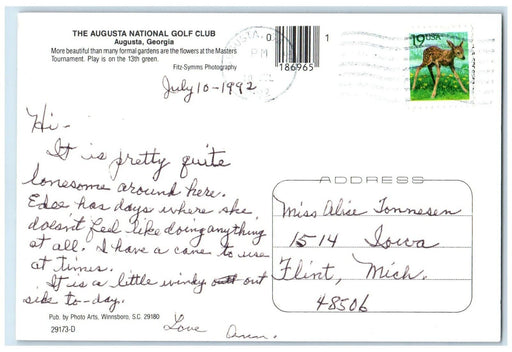 THE AUGUSTA NATIONAL GOLF CLUB
Augusta, Georgia
More beautiful than many formal gardens are the flowers at the Masters
Tournament. Play is on the 13th green.
Fitz-Symms Photography
0
1
186965
PM
19 USA
July 10-1992
Hi-
It is pretty quite
lonesome around here.
has days where she
doesn't feel like doing anything
at all. I have a cane to use
at times.
It is a little windy out
side to-day.
Love
Pub. by Photo Arts, Winnsboro, S.C. 29180
29173-D
ADDRESS
Miss Alice Tonnesen
1514 Iowa
Flint, Mich.
48506